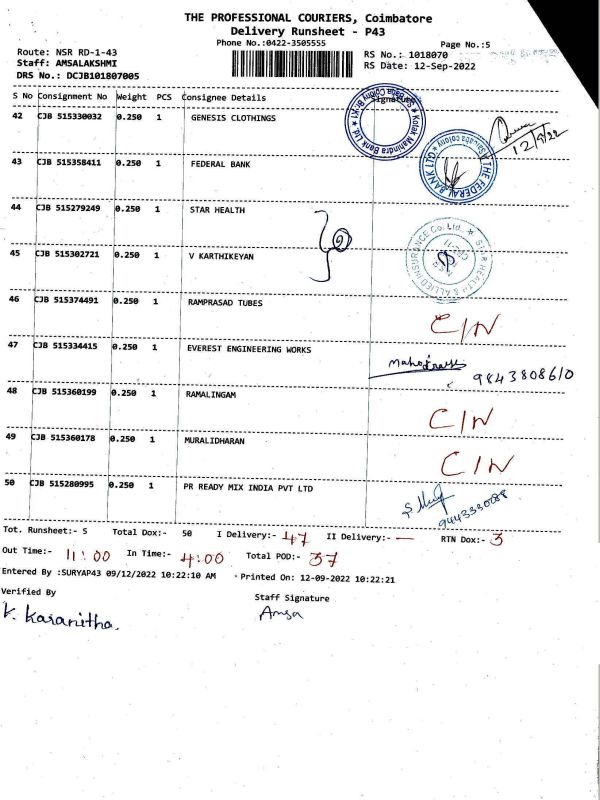 THE PROFESSIONAL COURIERS, Coimbatore
Delivery Runsheet - P43
Phone No.:0422-3505555
Page No.:5
Route: NSR RD-1-43
RS No.: 1018070
Staff: AMSALAKSHMI
RS Date: 12-Sep-2022
DRS No.: DCJB101807005
S No Consignment No Weight PCS Consignee Details Signature
42 CJB 515330032 0.250 1 GENESIS CLOTHINGS
Kotak Mahindra Bank Ltd.
12/9/22
43 CJB 515358411 0.250 1 FEDERAL BANK
THE FEDERAL BANK LTD
44 CJB 515279249 0.250 1 STAR HEALTH
STAR HEALTH & ALLIED INSURANCE Co. Ltd.
45 CJB 515302721 0.250 1 V KARTHIKEYAN
46 CJB 515374491 0.250 1 RAMPRASAD TUBES C/N
47 CJB 515334415 0.250 1 EVEREST ENGINEERING WORKS
9843808610
48 CJB 515360199 0.250 1 RAMALINGAM C/N
49 CJB 515360178 0.250 1 MURALIDHARAN C/N
50 CJB 515280995 0.250 1 PR READY MIX INDIA PVT LTD
Tot. Runsheet:- 5 Total Dox:- 50 I Delivery:- 47 II Delivery:- — RTN Dox:- 3
Out Time:- 11:00 In Time:- 4:00 Total POD:- 37
Entered By :SURYAP43 09/12/2022 10:22:10 AM Printed On: 12-09-2022 10:22:21
Verified By
Staff Signature
K. Kasanitha.
Amsa